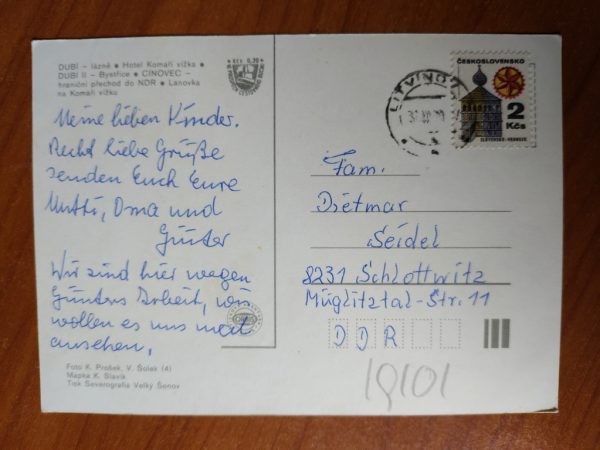 DUBÍ – lázně ● Hotel Komáří vížka ●
DUBÍ II – Bystřice ● CÍNOVEC –
hraniční přechod do NDR ● Lanovka
na Komáří vížku
Kčs 0,30
Meine lieben Kinder.
Recht liebe Grüße
senden Euch Eure
Mutti, Oma und
Günter
Wir sind hier wegen
Günters Arbeit, wir
wollen es uns mal
ansehen.
Foto K. Prošek, V. Šolek (4)
Mapka K. Slavík
Tisk Severografia Velký Šenov
LITVÍNOV
ČESKOSLOVENSKO
2
Kčs
SLOVENSKO
Fam.
Dietmar
Seidel
8231 Schlottwitz
Müglitztal-Str. 11
DDR
19101